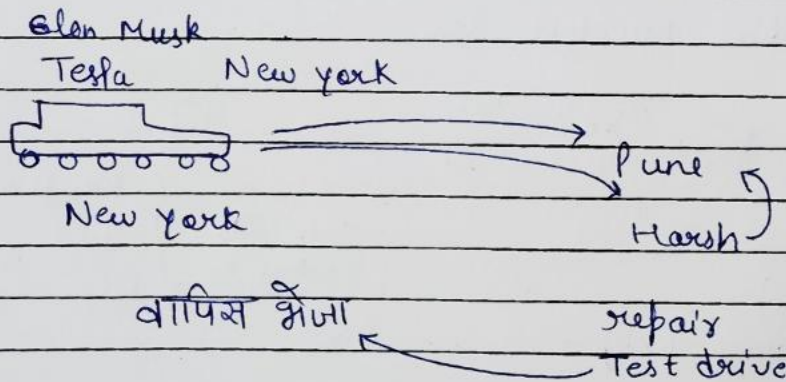 Elon Musk
Tesla New york
Pune
New york
Harsh
वापिस भेजा
repair
Test drive